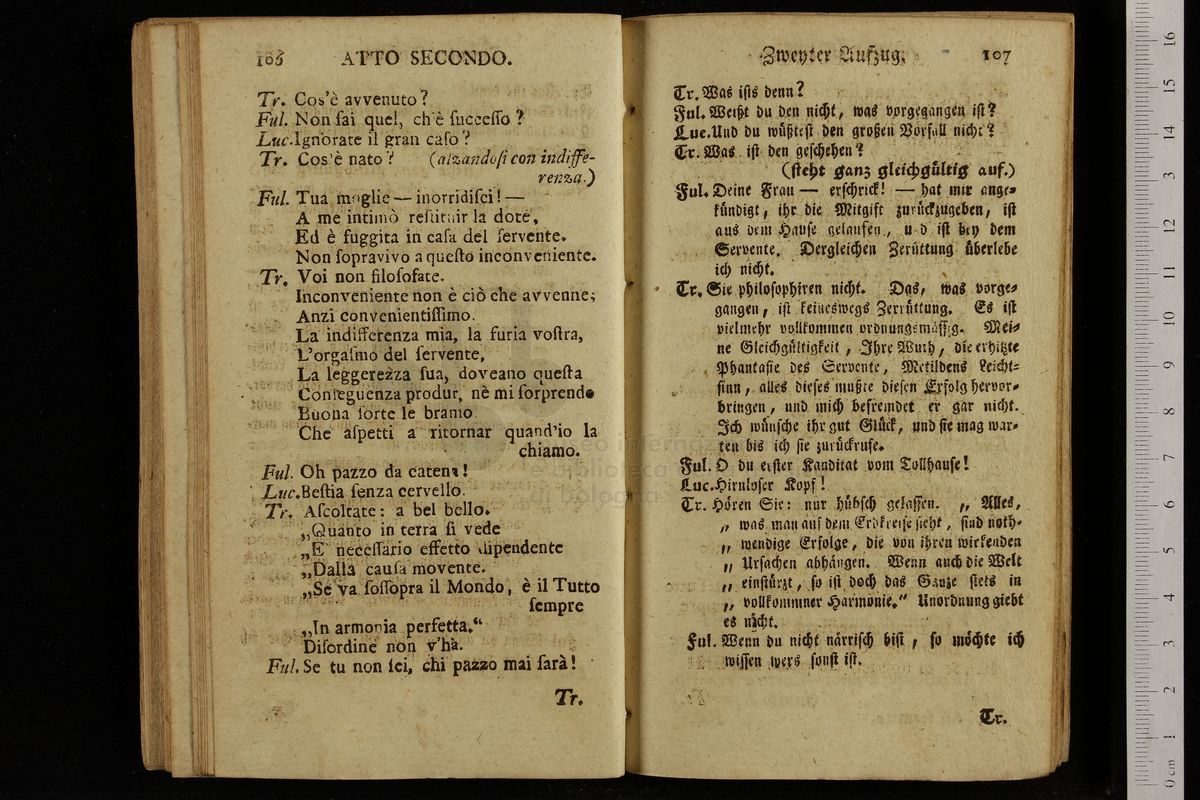 106 ATTO SECONDO.
Tr. Cos'è avvenuto?
Ful. Non ſai quel, ch'è ſucceſſo?
Luc. Ignorate il gran caſo?
Tr. Cos'è nato? (alzandoſi con indiffe-
renza.)
Ful. Tua moglie — inorridiſci! —
A me intimò reſtituir la dote,
Ed è fuggita in caſa del ſervente.
Non ſopravivo a queſto inconveniente.
Tr. Voi non filoſofate.
Inconveniente non è ciò che avvenne;
Anzi convenientiſſimo.
La indifferenza mia, la furia voſtra,
L'orgaſmo del ſervente,
La leggerezza ſua, doveano queſta
Conſeguenza produr, nè mi ſorprendo
Buona ſorte le bramo
Che aſpetti a ritornar quand'io la
chiamo.
Ful. Oh pazzo da catena!
Luc. Beſtia ſenza cervello.
Tr. Aſcoltate: a bel bello.
„Quanto in terra ſi vede
„E' neceſſario effetto dipendente
„Dalla cauſa movente.
„Se va ſoſſopra il Mondo, è il Tutto
ſempre
„In armonia perfetta.“
Diſordine non v'ha.
Ful. Se tu non ſei, chi pazzo mai ſarà!
Tr.
Zweyter Aufzug. 107
Tr. Was iſts denn?
Ful. Weißt du den nicht, was vorgegangen iſt?
Luc. Und du wüßteſt den großen Vorfall nicht?
Tr. Was iſt den geſchehen?
(ſteht ganz gleichgültig auf.)
Ful. Deine Frau — erſchrick! — hat mir ange-
kündigt, ihr die Mitgift zurückzugeben, iſt
aus dem Hauſe gelaufen, u d iſt bey dem
Servente. Dergleichen Zerüttung überlebe
ich nicht.
Tr. Sie philoſophiren nicht. Das, was vorge-
gangen, iſt keineswegs Zerrüttung. Es iſt
vielmehr vollkommen ordnungsmäſſig. Mei-
ne Gleichgültigkeit, Ihre Wuth, die erhitzte
Phantaſie des Servente, Metildens Leicht-
ſinn, alles dieſes mußte dieſen Erfolg hervor-
bringen, und mich befremdet er gar nicht.
Ich wünſche ihr gut Glück, und ſie mag war-
ten bis ich ſie zurückrufe.
Ful. O du erſter Kanditat vom Tollhauſe!
Luc. Hirnloſer Kopf!
Tr. Hören Sie: nur hübſch gelaſſen. „Alles,
„was man auf dem Erdkreiſe ſieht, ſind noth-
„wendige Erfolge, die von ihren wirkenden
„Urſachen abhängen. Wenn auch die Welt
„einſtürzt, ſo iſt doch das Ganze ſtets in
„vollkommner Harmonie.“ Unordnung giebt
es nicht.
Ful. Wenn du nicht närriſch biſt, ſo möchte ich
wiſſen wers ſonſt iſt.
Tr.